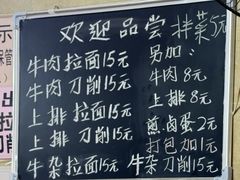 欢迎品尝 拌菜5元
牛肉拉面15元
牛肉刀削15元
上排拉面15元
上排刀削15元
牛杂拉面15元
另加:
牛肉8元
上排8元
煎.卤蛋2元
打包加1元
牛杂刀削15元